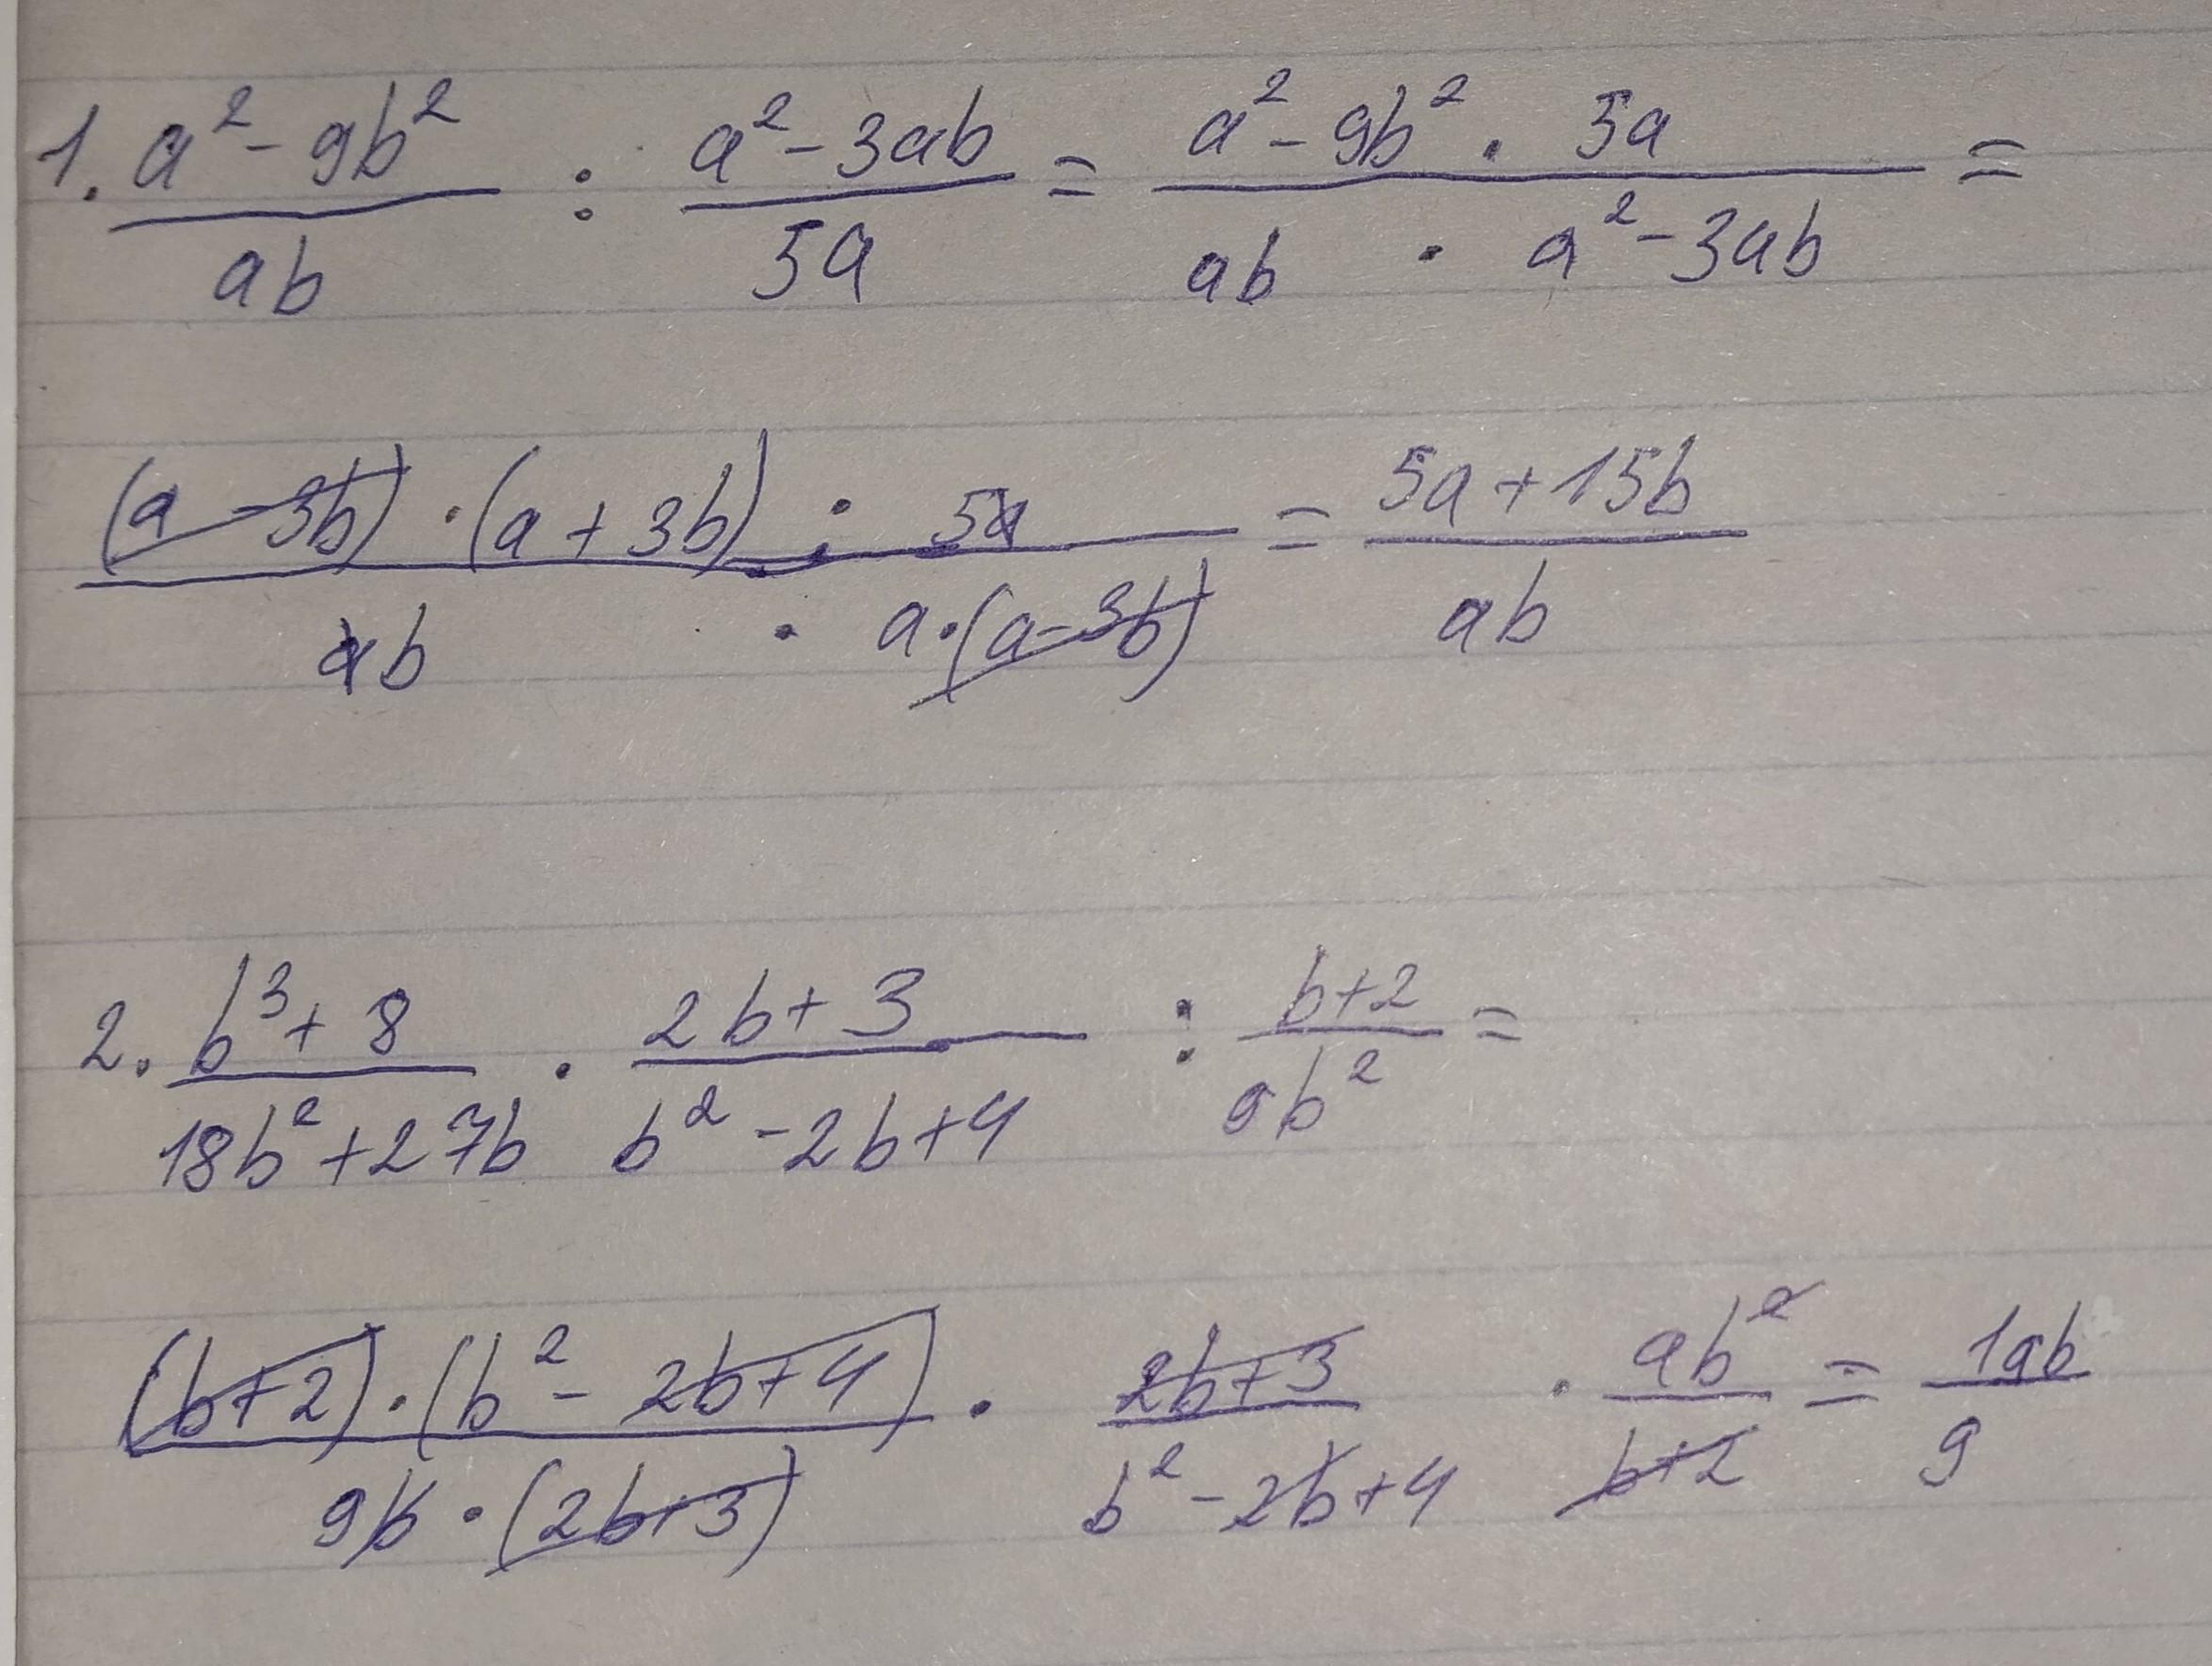 1. (a² - 9b²)/(ab) : (a² - 3ab)/(5a) = (a² - 9b² · 5a)/(ab · a² - 3ab) =
((a - 3b) · (a + 3b) · 5a)/(ab · a · (a - 3b)) = (5a + 15b)/(ab)
2. (b³ + 8)/(18b² + 27b) · (2b + 3)/(b² - 2b + 4) : (b + 2)/(9b²) =
((b + 2) · (b² - 2b + 4))/(9b · (2b + 3)) · (2b + 3)/(b² - 2b + 4) · (ab²)/(b + 2) = (1ab)/(9)